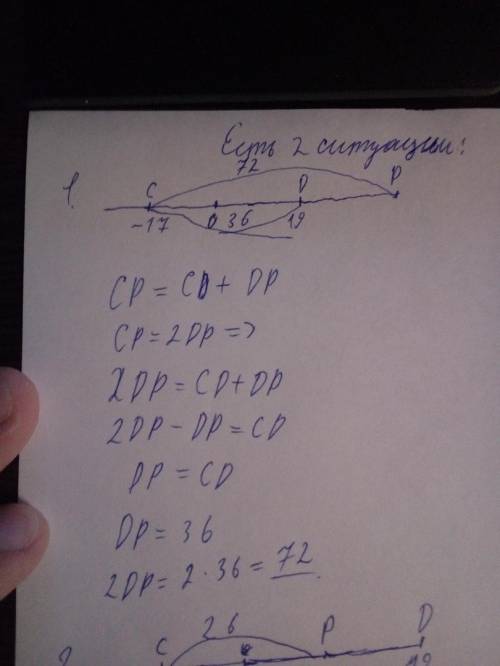 Есть 2 ситуации:
1.
72
C D P
-17 0 36 19
CP = CD + DP
CP = 2DP =>
2DP = CD + DP
2DP - DP = CD
DP = CD
DP = 36
2DP = 2 · 36 = 72
26
C P D
19